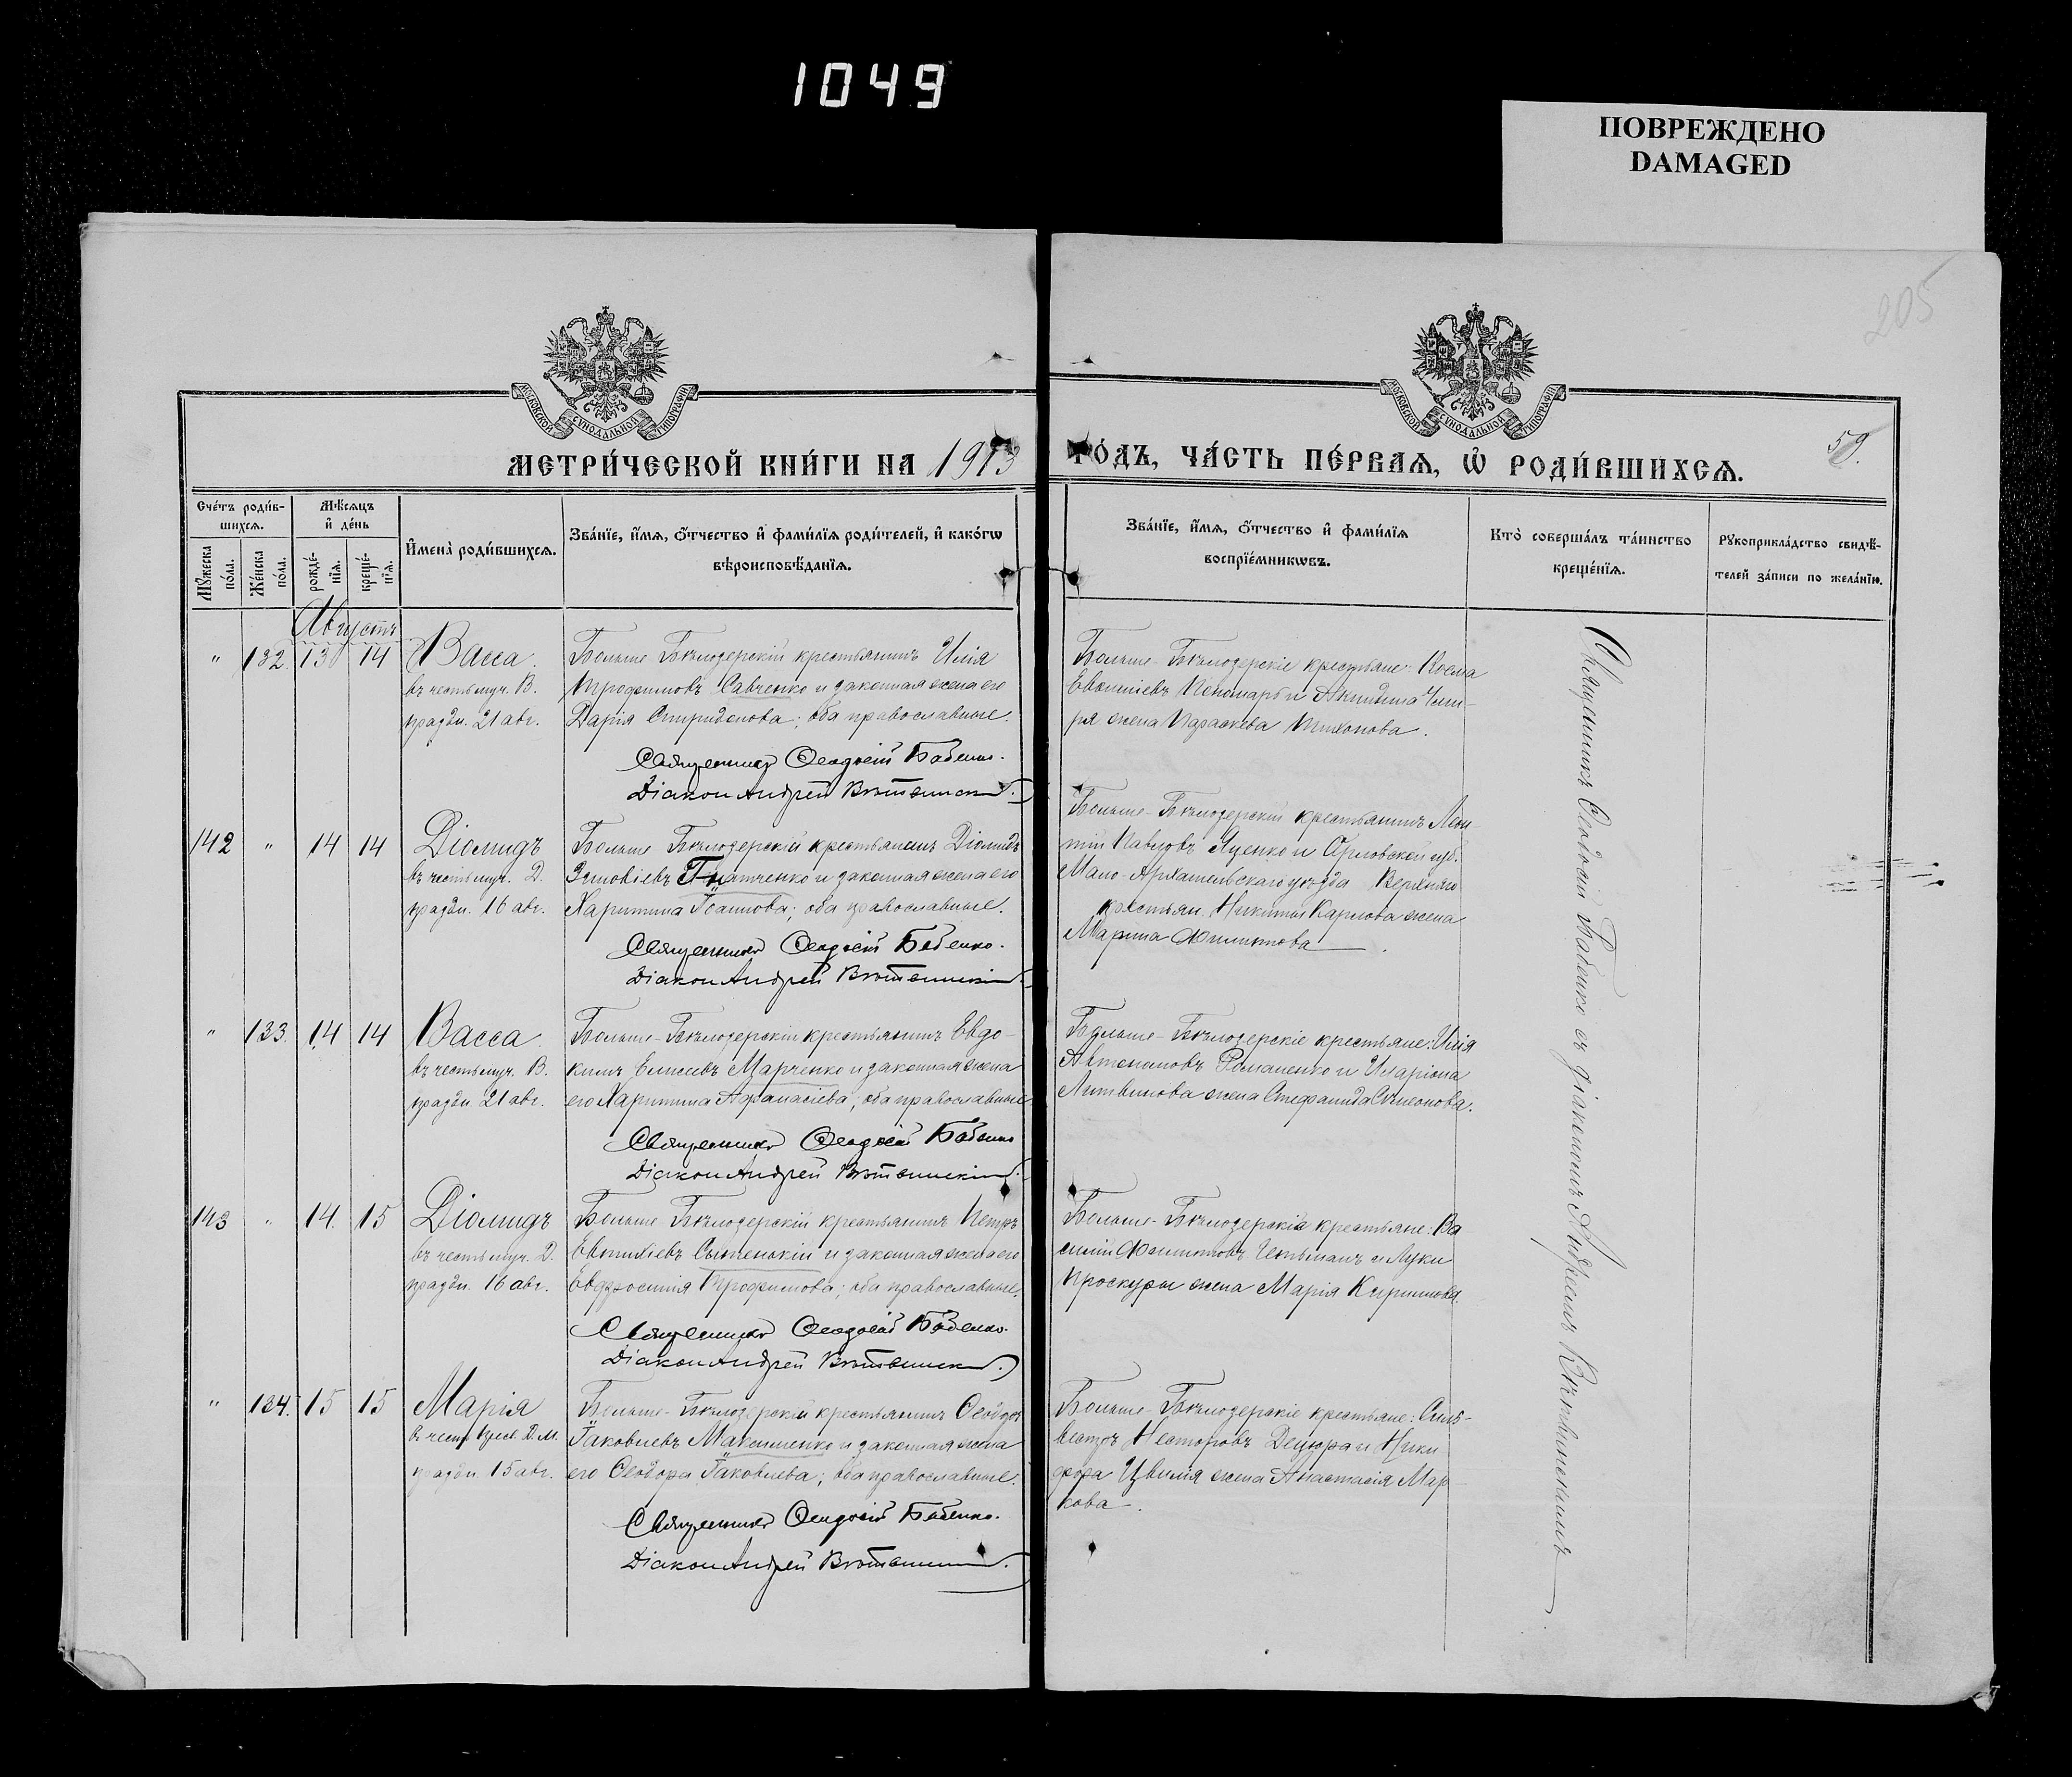 1049
ПОВРЕЖДЕНО
DAMAGED
205
МОСКОВСКОЙ СУНОДАЛЬНОЙ ТИПОГРАФІИ
МОСКОВСКОЙ СУНОДАЛЬНОЙ ТИПОГРАФІИ
МЕТРИ́ЧЕСКОЙ КНИ́ГИ НА 1913
ГО́ДЪ, ЧА́СТЬ ПЕ́РВАѦ, Ѡ РОДИ́ВШИХСѦ.
59.
Сче́тъ роди́в-
шихсѧ.
Мꙋжеска по́ла.
Же́нска по́ла.
Мѣсѧцъ
и҆ де́нь
рожде́-
нїѧ.
креще́-
нїѧ.
И҆мена̀ роди́вшихсѧ.
Зва́нїе, и҆́мѧ, ѻ҆́тчество и҆ фами́лїѧ роди́телей, и҆ како́гѡ
вѣроисповѣ́данїѧ.
Зва́нїе, и҆́мѧ, ѻ҆́тчество и҆ фами́лїѧ
воспрїе́мникѡвъ.
Кто̀ соверша́лъ та́инство
креще́нїѧ.
Рꙋкоприкла́дство свидѣ́-
телей за́писи по жела́нїю.
Августъ
" 132. 13 14
Васса.
въ честь муч. В.
праздн. 21 авг.
Больше Бѣлозерскій крестьянинъ Илія
Трофимовъ Савченко и законная жена его
Дарія Спиридонова; оба православные.
Священникъ Ѳеодосій Бабенко.
Діаконъ Андрей Вѣтвинскій.
Больше-Бѣлозерскіе крестьяне: Косма
Евѳиміевъ Пономарь и Акиндина
жена Параскева Тихонова.
142 " 14 14
Діомидъ
въ честь муч. Д.
праздн. 16 авг.
Больше Бѣлозерскій крестьянинъ Діомидъ
Зиновіевъ Гнатченко и законная жена его
Харитина Іоаннова; оба православные.
Священникъ Ѳеодосій Бабенко.
Діаконъ Андрей Вѣтвинскій
Больше-Бѣлозерскій крестьянинъ Леон-
тій Павловъ Яценко и Орловской губ.
Мало-Архангельскаго уѣзда Верхняго
крестьян. Никиты Карлова жена
Марина Филиппова.
" 133. 14 14
Васса
въ честь муч. В.
праздн. 21 авг.
Больше-Бѣлозерскій крестьянинъ Евдо-
кимъ Елисеевъ Марченко и законная жена
его Харитина Аѳанасіева; оба православные
Священникъ Ѳеодосій Бабенко
Діаконъ Андрей Вѣтвинскій.
Больше-Бѣлозерскіе крестьяне: Илія
Автономовъ Романенко и Иларіона
Литвинова жена Стефанида Симеонова.
143 " 14. 15
Діомидъ
въ честь муч. Д.
праздн. 16 авг.
Больше Бѣлозерскій крестьянинъ Петръ
Евтихіевъ Сытенькій и законная жена его
Евфросинія Трофимова; оба православные.
Священникъ Ѳеодосій Бабенко.
Діаконъ Андрей Вѣтвинскій.
Больше-Бѣлозерскіе крестьяне: Ва
силій Филипповъ Гетьманъ и Луки
Проскуры жена Марія Кириллова.
" 134. 15 15
Марія
въ честь Пресв. Д. М.
праздн. 15 авг.
Больше-Бѣлозерскій крестьянинъ Ѳеодоръ
Іаковлевъ Максименко и законная жена
его Ѳеодора Іаковлева; оба православные.
Священникъ Ѳеодосій Бабенко.
Діаконъ Андрей Вѣтвинскій.
Больше-Бѣлозерскіе крестьяне: Силь-
вестръ Несторовъ Децюра и Ники
фора Цвилія жена Анастасія Мар
кова.
Священникъ Ѳеодосій Бабенко съ діакономъ Андреемъ Вѣтвинскимъ